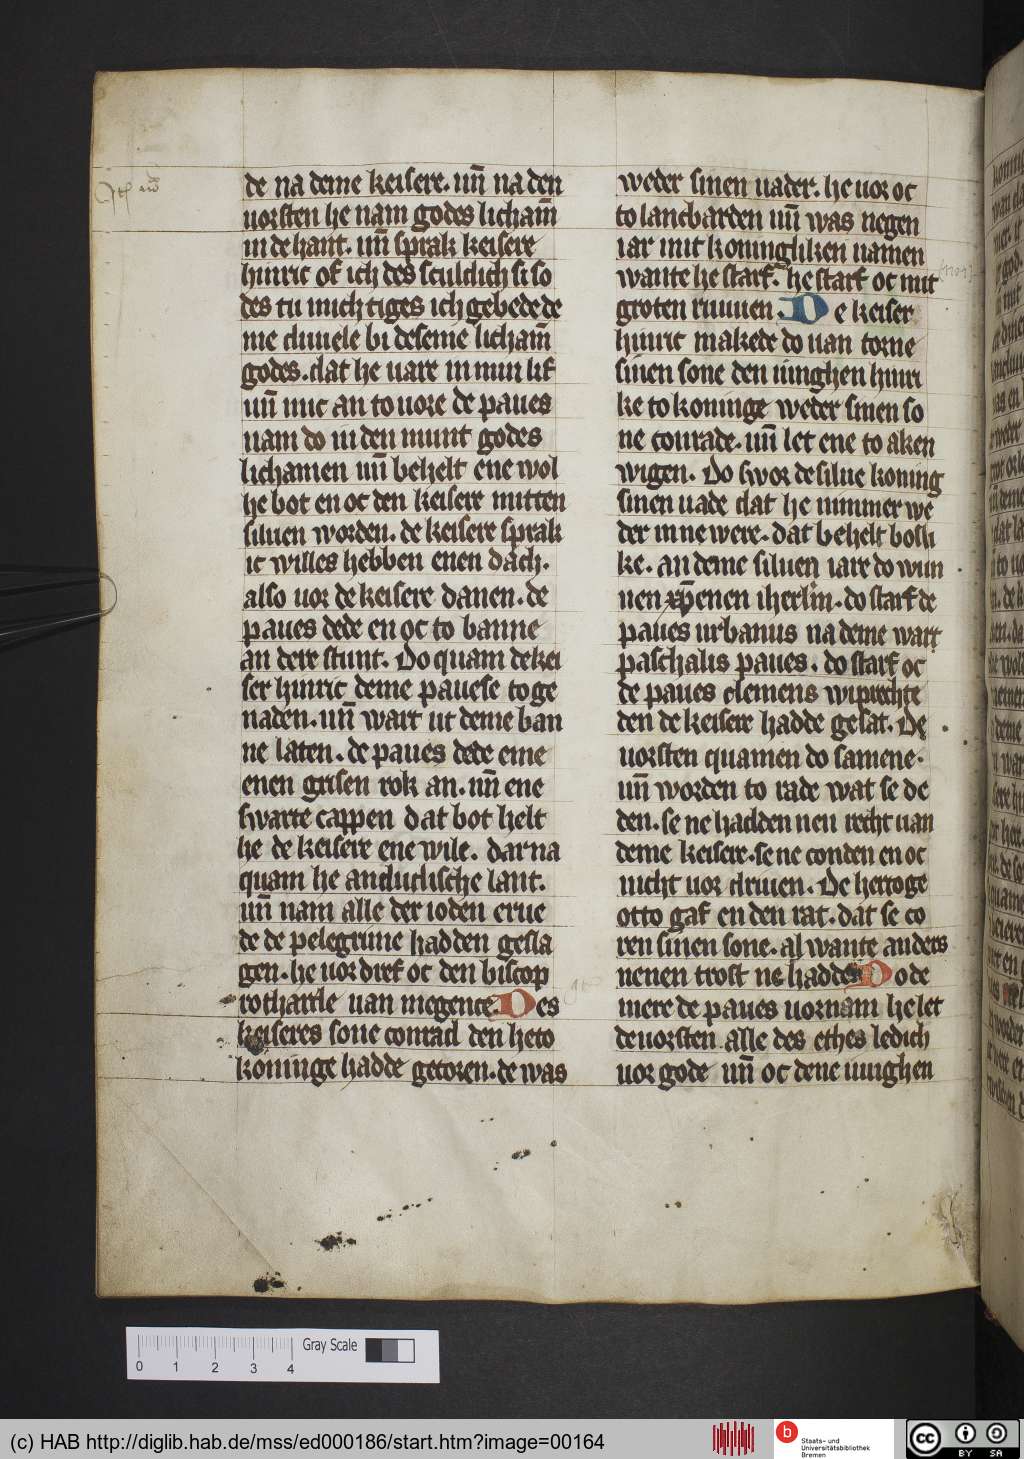 de na deme keisere. un̄ na den
uorsten he nam godes lichām
in de hant. un̄ sprak keisere
hinric of ich des sculdich si so
des tu mich tiges ich gebede de
me duuele bi deseme lichām
godes. dat he uare in min lif
un̄ mic an to uore de paues
nam do in den munt godes
lichamen un̄ behelt ene wol
he bot en oc den keisere mitten
siluen worden. de keisere sprak
ic willes hebben enen dach.
also uor de keisere danen. de
paues dede en oc to banne
an dere stunt. Do quam de kei
ser hinric deme pauese to ge
naden. un̄ wart ut deme ban
ne laten. de paues dede eme
enen grisen rok an. un̄ ene
swarte cappen dat bot helt
he de keisere ene wile. dar na
quam he an dudische lant.
un̄ nam alle der ioden erue
de de pelegrime hadden gesla
gen. he uordref oc den biscop
rotharde uan megence. Des
keiseres sone conrad den he to
koninge hadde gecoren. de was
weder sinen uader. he uor oc
to lancbarden un̄ was negen
iar mit koningliken namen
wante he starf. he starf oc mit
groten ruuuen. De keiser
hinric makede do uan torne
sinen sone den iunghen hinri
ke to koninge weder sinen so
ne conrade. un̄ let ene to aken
wigen. Do swor de silue koning
sinen uade dat he nimmer we
der in ne were. dat behelt bosli
ke. an deme siluen iare do wun
nen xp̄enen iherl̄m. do starf de
paues urbanus na deme wart
paschalis paues. do starf oc
de paues clemens wiprechte
den de keisere hadde gesat. De
uorsten quamen do samene.
un̄ worden to rade wat se de
den. se ne hadden neu recht uan
deme keisere. se ne conden en oc
nicht uor driuen. De hertoge
otto gaf en den rat. dat se co
ren sinen sone. al wante anders
nenen trost ne hadden Do de
mere de paues uornam he let
de uorsten alle des ethes ledich
uor gode un̄ oc dene iunghen
0 1 2 3 4
Gray Scale
(c) HAB http://diglib.hab.de/mss/ed000186/start.htm?image=00164
Staats- und
Universitätsbibliothek
Bremen
cc BY SA